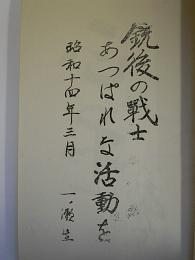 銃後の戦士
あつぱれな活動を
昭和十四年三月
一ノ瀬生